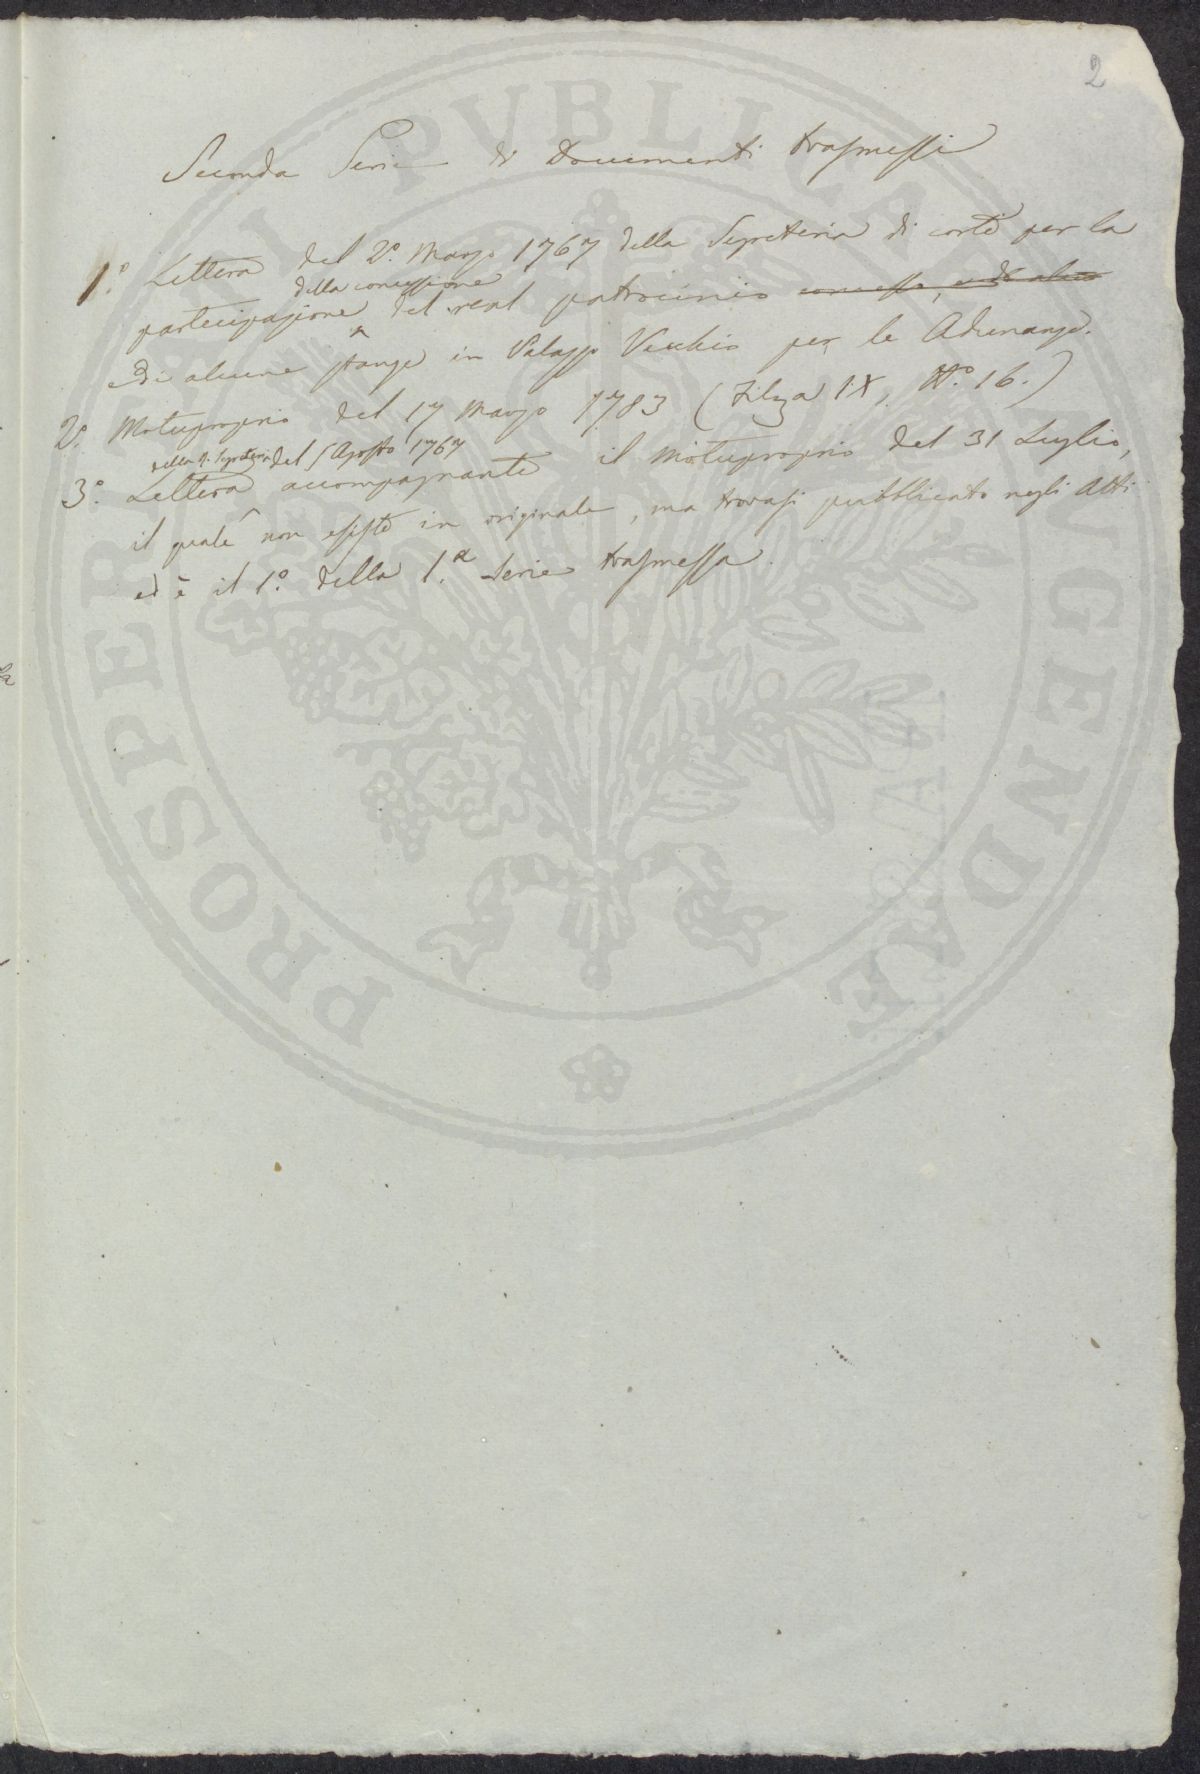 2
Seconda Serie di Documenti trasmessi
1.° Lettera del 2.° Marzo 1767 della Segreteria di corte per la
della concessione
partecipazione del real patrocinio concesso, e di alcune
e di alcune stanze in Palazzo Vecchio per le Adunanze.
2.° Motuproprio del 17 Marzo 1783 (Filza IX, N.° 16.)
della Segreteria del 5 Agosto 1767
3.° Lettera accompagnante il Motuproprio del 31 Luglio,
il quale non esiste in originale, ma trovasi pubblicato negli Atti
ed è il 1.° della 1.a Serie trasmessa.
PROSPERITATI PVBLICAE AVGENDAE